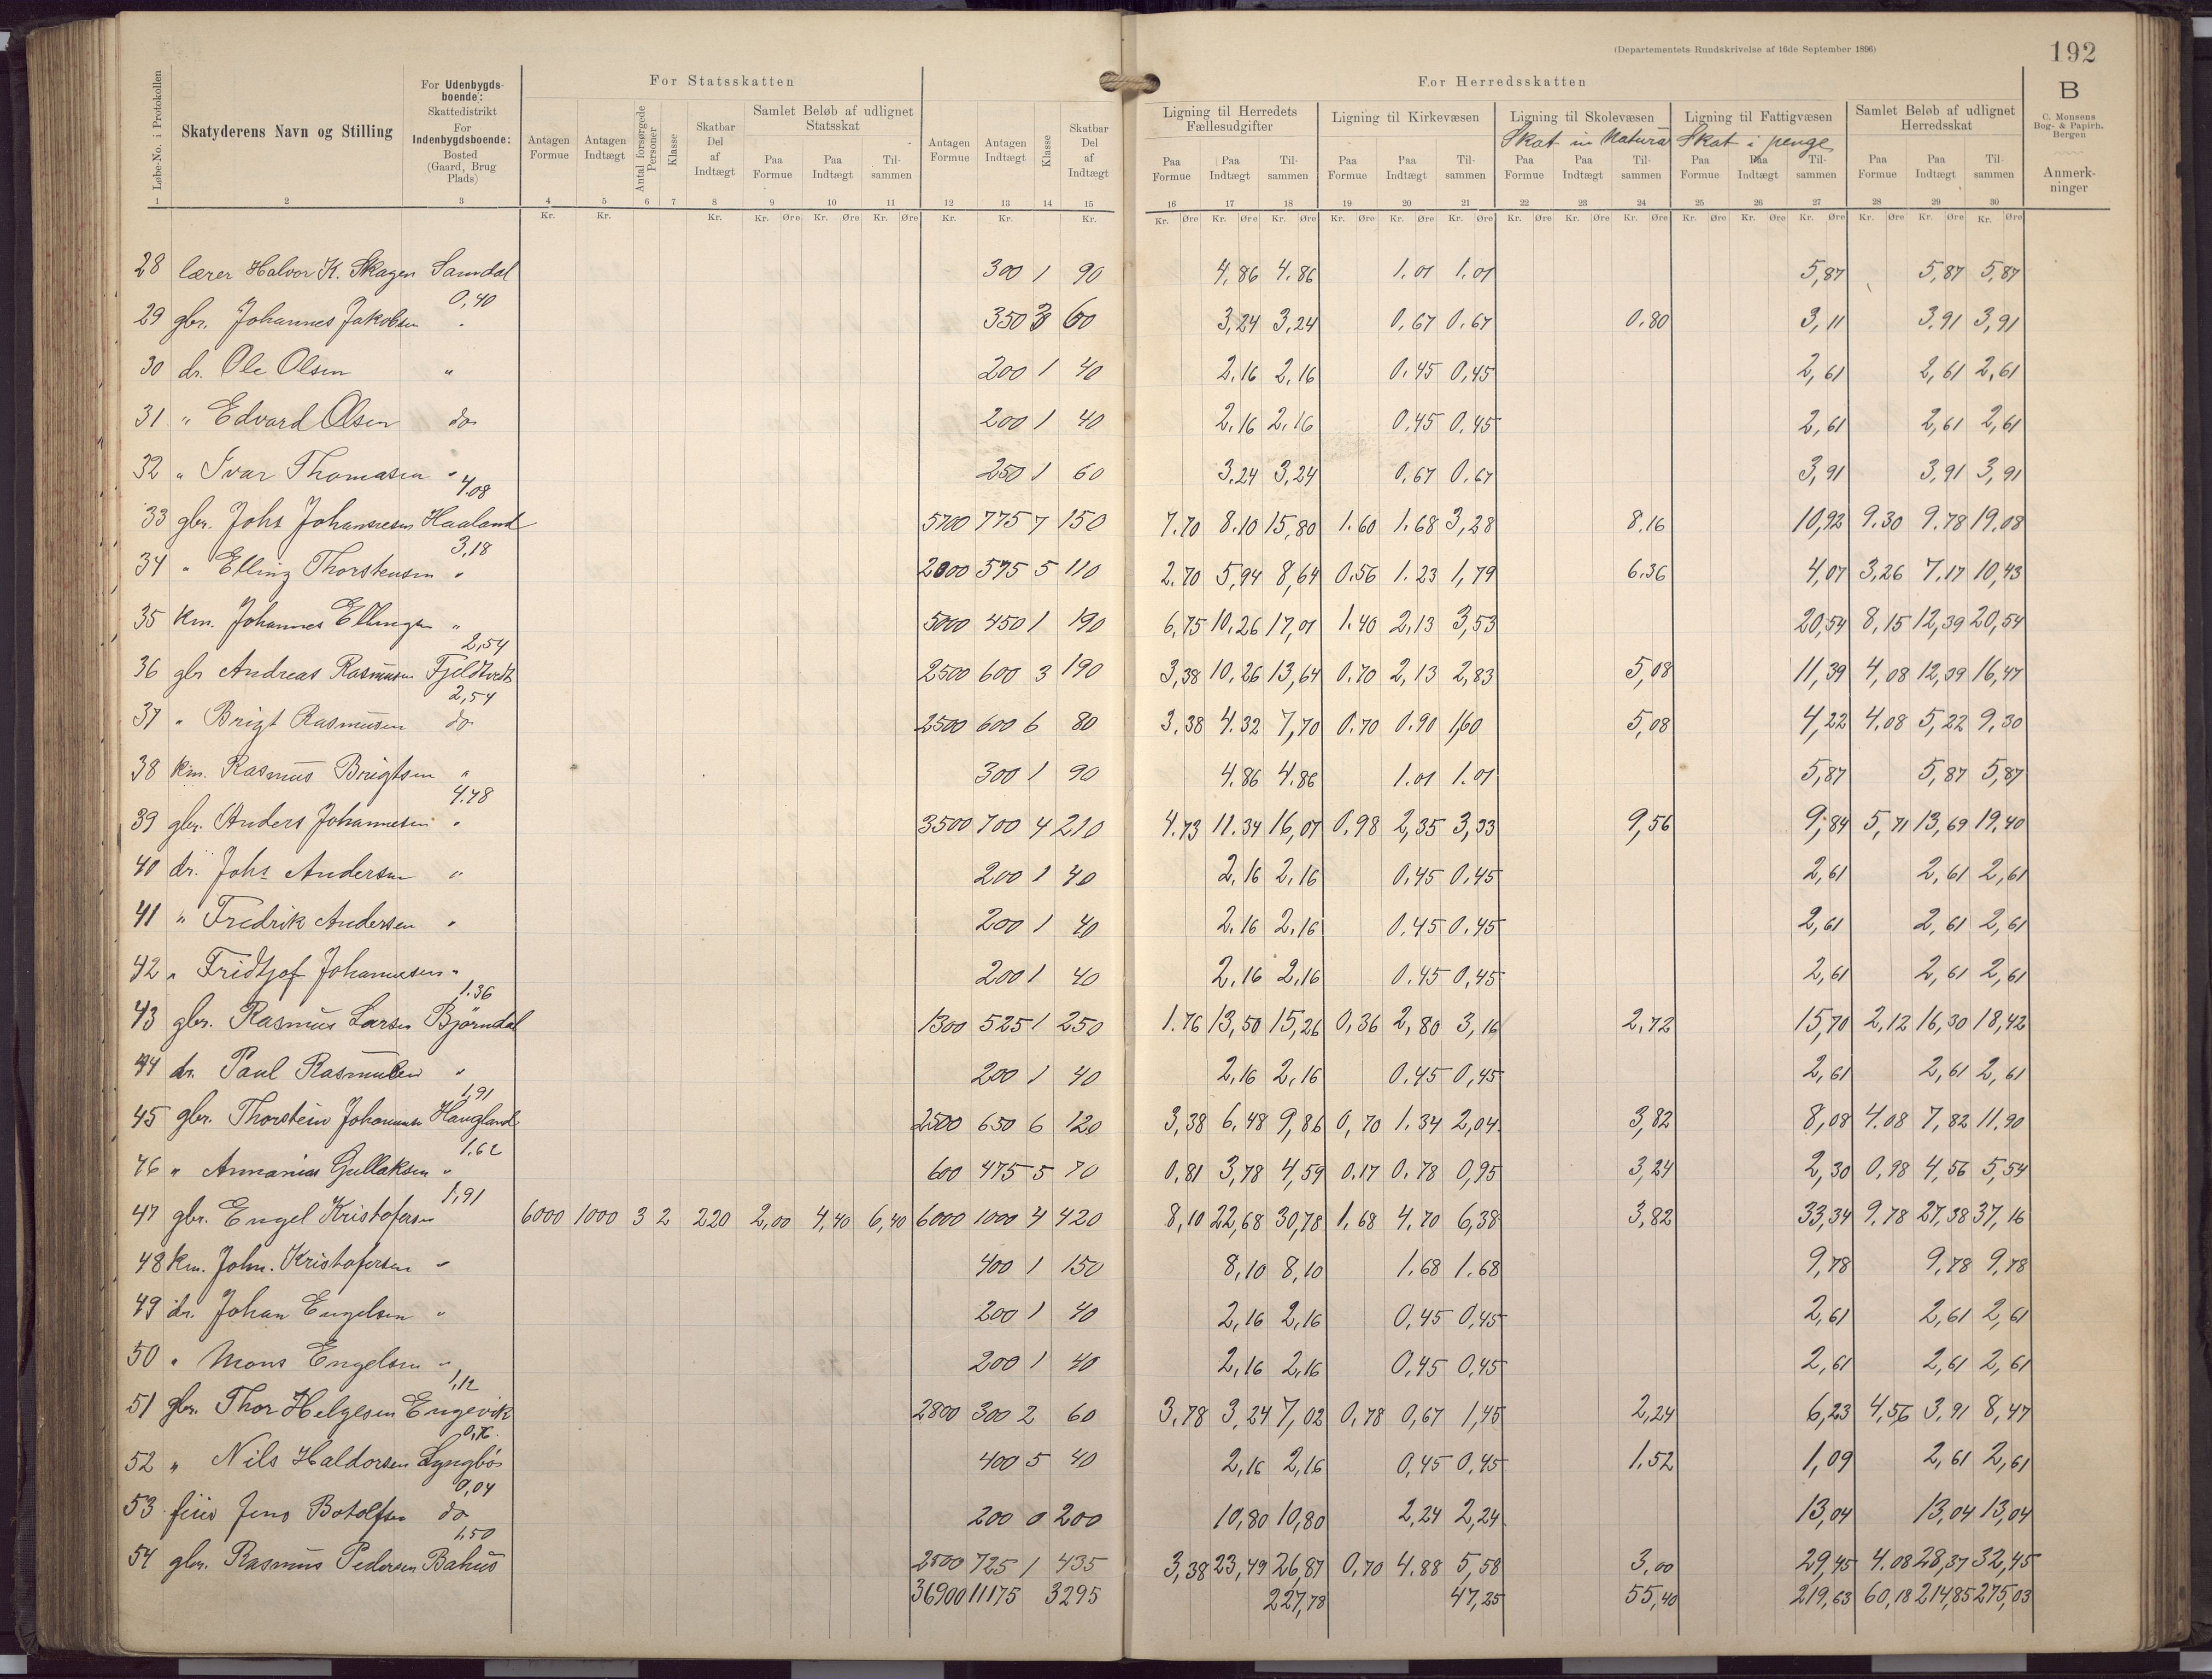 (Departementets Rundskrivelse af 16de September 1896)
192
B
C. Monsens Bog- & Papirh. Bergen
For Statsskatten
For Herredsskatten
Løbe-No. i Protokollen
Skatyderens Navn og Stilling
For Udenbygdsboende: Skattedistrikt For Indenbygdsboende: Bosted (Gaard, Brug Plads)
Antagen Formue
Antagen Indtægt
Antal forsørgede Personer
Klasse
Skatbar Del af Indtægt
Samlet Beløb af udlignet Statsskat
Paa Formue Paa Indtægt Tilsammen
Antagen Formue
Antagen Indtægt
Klasse
Skatbar Del af Indtægt
Ligning til Herredets Fællesudgifter
Paa Formue Paa Indtægt Tilsammen
Ligning til Kirkevæsen
Paa Formue Paa Indtægt Tilsammen
Ligning til Skolevæsen
Skat in Natura
Paa Formue Paa Indtægt Tilsammen
Ligning til Fattigvæsen
Skat i penge
Paa Formue Paa Indtægt Tilsammen
Samlet Beløb af udlignet Herredsskat
Paa Formue Paa Indtægt Tilsammen
Anmerkninger
1 2 3 4 5 6 7 8 9 10 11 12 13 14 15 16 17 18 19 20 21 22 23 24 25 26 27 28 29 30
Kr. Kr. Kr. Kr. Øre Kr. Øre Kr. Øre Kr. Kr. Kr. Kr. Øre Kr. Øre Kr. Øre Kr. Øre Kr. Øre Kr. Øre Kr. Øre Kr. Øre Kr. Øre Kr. Øre Kr. Øre Kr. Øre Kr. Øre Kr. Øre Kr. Øre
28 lærer Halvor K. Skagen Samdal 300 1 90 4.86 4.86 1.01 1.01 5,87 5,87 5,87
0,40
29 gbr. Johannes Jakobsen " 350 3 60 3,24 3,24 0,67 0.67 0.80 3,11 3.91 3,91
30 dr. Ole Olsen " 200 1 40 2.16 2,16 0.45 0,45 2,61 2,61 2,61
31 " Edvard Olsen do 200 1 40 2.16 2.16 0.45 0.45 2,61 2,61 2,61
32 " Ivar Thomasen " 250 1 60 3.24 3,24 0,67 0.67 3,91 3,91 3,91
4.08
33 gbr. Johs Johannesen Haaland 5700 775 7 150 7.70 8.10 15,80 1.60 1.68 3,28 8.16 10,92 9.30 9.78 19.08
3,18
34 " Elling Thorstensen " 2000 575 5 110 2.70 5,94 8,64 0.56 1.23 1,79 6.36 4,07 3,26 7,17 10,43
35 km. Johannes Ellingsen " 5000 450 1 190 6,75 10,26 17,01 1.40 2,13 3,53 20,54 8,15 12,39 20,54
2,54
36 gbr Andreas Rasmusen Fjeldtvedt 2500 600 3 190 3,38 10,26 13,64 0.70 2,13 2,83 5,08 11,39 4,08 12,39 16,47
2,54
37 " Brigt Rasmusen do 2500 600 6 80 3,38 4.32 7,70 0.70 0.90 1,60 5,08 4,22 4.08 5,22 9,30
38 km. Rasmus Brigtsen " 300 1 90 4.86 4.86 1.01 1.01 5,87 5,87 5,87
4.78
39 gbr. Anders Johannesen " 3500 700 4 210 4.73 11.34 16,07 0,98 2,35 3,33 9,56 9,84 5,71 13,69 19,40
40 dr. Johs Andersen " 200 1 40 2,16 2,16 0.45 0.45 2,61 2,61 2,61
41 " Fredrik Andersen " 200 1 40 2,16 2,16 0.45 0.45 2,61 2,61 2,61
42 " Fridtjof Johannesen " 200 1 40 2,16 2,16 0.45 0,45 2,61 2,61 2,61
1.36
43 gbr. Rasmus Larsen Bjørndal 1300 525 1 250 1.76 13,50 15,26 0,36 2,80 3,16 2,72 15,70 2,12 16,30 18,42
44 dr. Paul Rasmusen " 200 1 40 2,16 2,16 0.45 0,45 2,61 2,61 2,61
1,91
45 gbr. Thorstein Johannesen Haugland 2500 650 6 120 3,38 6,48 9,86 0,70 1.34 2,04 3,82 8,08 4.08 7,82 11.90
1.62
46 " Annanias Gullaksen " 600 475 5 70 0,81 3,78 4,59 0.17 0.78 0,95 3,24 2,30 0,98 4,56 5,54
1,91
47 gbr. Engel Kristofersen 6000 1000 3 2 220 2,00 4,40 6,40 6000 1000 4 420 8,10 22,68 30,78 1,68 4,70 6,38 3,82 33,34 9.78 27,38 37,16
48 km. John. Kristofersen " 400 1 150 8,10 8,10 1.68 1.68 9,78 9,78 9,78
49 dr. Johan Engelsen " 200 1 40 2,16 2,16 0,45 0,45 2,61 2,61 2,61
50 " Mons Engelsen " 200 1 40 2,16 2,16 0,45 0,45 2,61 2,61 2,61
1,12
51 gbr. Thor Helgesen Engevik 2800 300 2 60 3,78 3,24 7,02 0,78 0,67 1,45 2,24 6,23 4,56 3,91 8,47
0,76
52 " Nils Haldorsen Lyngbø 400 5 40 2,16 2,16 0,45 0.45 1.52 1,09 2,61 2,61
0,04
53 Jens Botolfsen do 200 0 200 10,80 10,80 2,24 2,24 13,04 13,04 13,04
1,50
54 gbr. Rasmus Pedersen Bahus 2500 725 1 435 3,38 23,49 26,87 0,70 4.88 5,58 3,00 29,45 4.08 28,37 32,45
36900 11175 3295 227,78 47,25 55,40 219,63 60,18 214,85 275,03